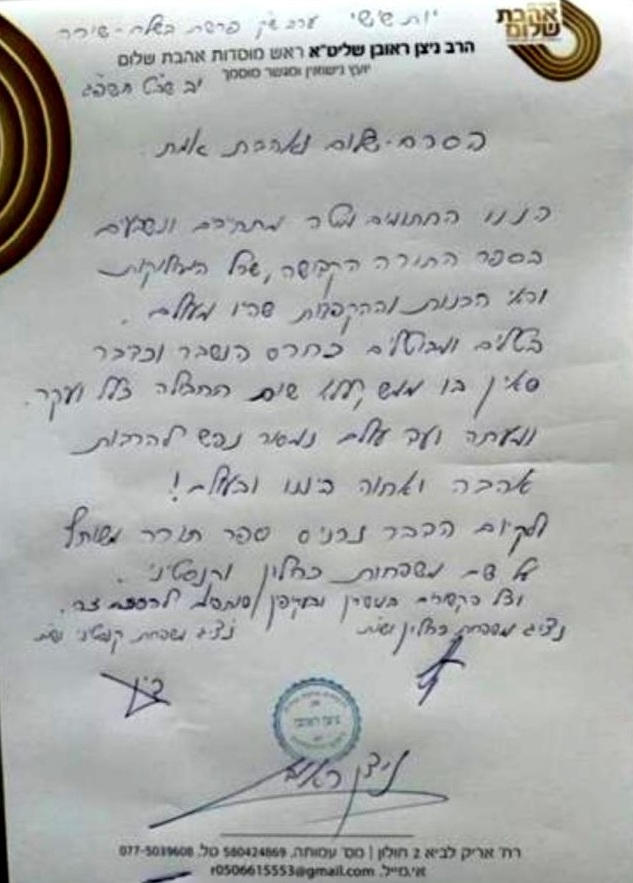 יום שישי ערב ש"ק פרשת בשלח - שירה
אהבת שלום
הרב ניצן ראובן שליט"א ראש מוסדות אהבת שלום
יועץ נישואין ומגשר מוסמך
יב שבט תשפ"ג
הסכם - שלום ואהבת אמת.
הננו החתומים מטה מתחייבים ונשבעים
בספר התורה הקדושה, שכל המחלוקות
ואי הבנות וההקפדות שהיו מעולם.
בטלים ומבוטלים כחרס הנשבר וכדבר
שאין בו ממש, ללא שום תחבולה כלל ועקר.
ומעתה ועד עולם נמסור נפש להרבות
אהבה ואחוה ביננו ובעולם!
ולקיום הדבר נכניס ספר תורה משותף
על שם משפחות כחלין
וכל הקשורים בעסקין ובעקיפין להסכם זה.
נציג משפחת כחלון נציג משפחת
ניצן ראובן
ניצן ראובן
רח' אריק לביא 2 חולון | מס' עמותה. 580424869 טל. 077-5039608
אי.מייל. r0506615553@gmail.com